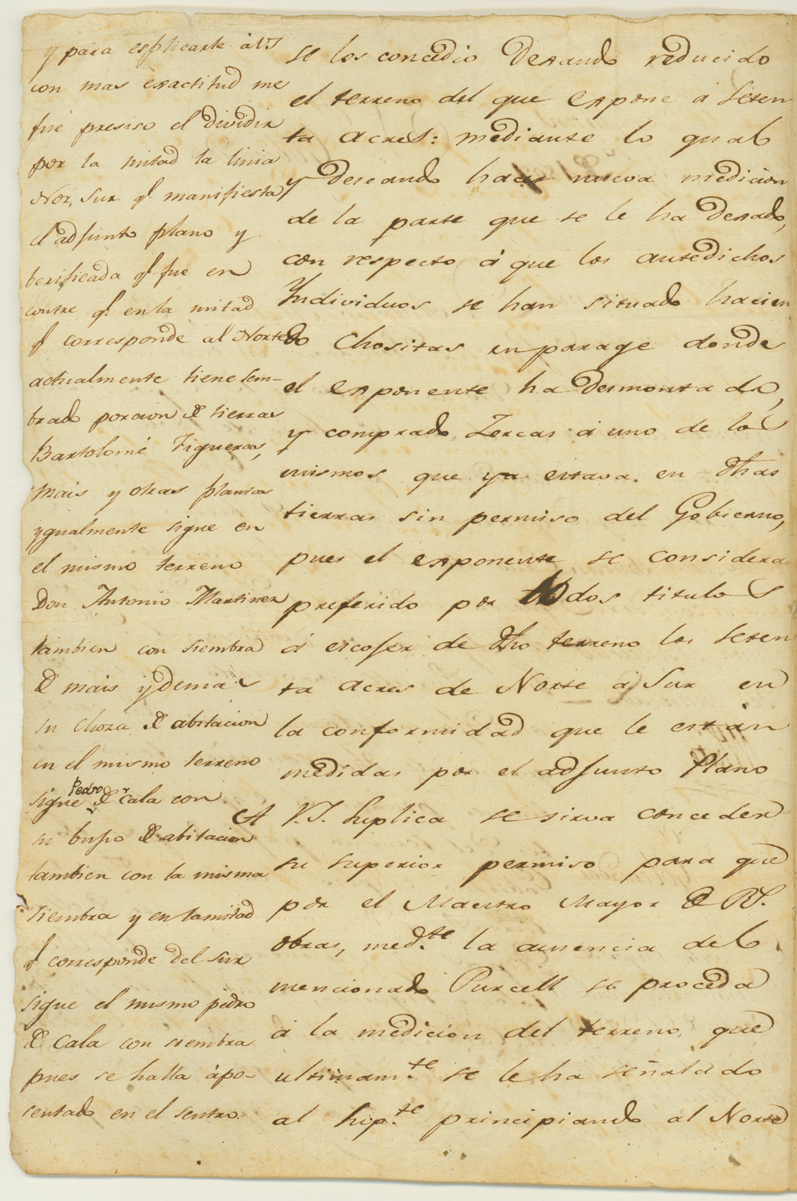 y para esplicarle à VS
con mas exactitud me
fué presiso el dividir
por la mitad la linia
Nor, Sur q.e manifiesta
el adjunto plano y
berificada q.e fue en
contre q.e en la mitad
q.e corresponde al Norte
actualmente tiene sem-
brado porcion de tierras
Bartolomé Figueras,
mais y otras plantas
ygualmente sigue en
el mismo terreno
Don Antonio Martinez
tambien con siembra
de mais y demas
su chosa de abitacion
en el mismo terreno
sigue Pedro de Cala con
su bujio de abitacion
tambien con la misma
siembra y en la mitad
q.e corresponde del Sur
sigue el mismo pedro
de Cala con siembra
pues se halla àpo-
sentado en el sentro.
se los concedio Dexando reducido
el terreno del que expone á seten
ta acres: mediante lo qual
y deseando hacer nueva medicion
de la parte que se le ha dexado,
con respecto á que los antedichos
Yndividuos se han situado hacien
do Chositas en parage donde
el exponente ha desmontado,
y comprado Zercas á uno de los
mismos que ya estava en dhas
tierras sin permiso del Gobierno,
pues el exponente se considera
preferido por todos titulos
á escojer de dho terreno los seten
ta acres de Norte á Sur en
la conformidad que le están
medidas por el adjunto Plano
A V.S. suplica se sirva conceder
su superior permiso para que
por el Maestro Mayor de R.s
obras, med.te la ausencia del
mencionado Purcell se proceda
á la medicion del terreno que
ultimam.te se le ha señalado
al sup.te principiando al Norte